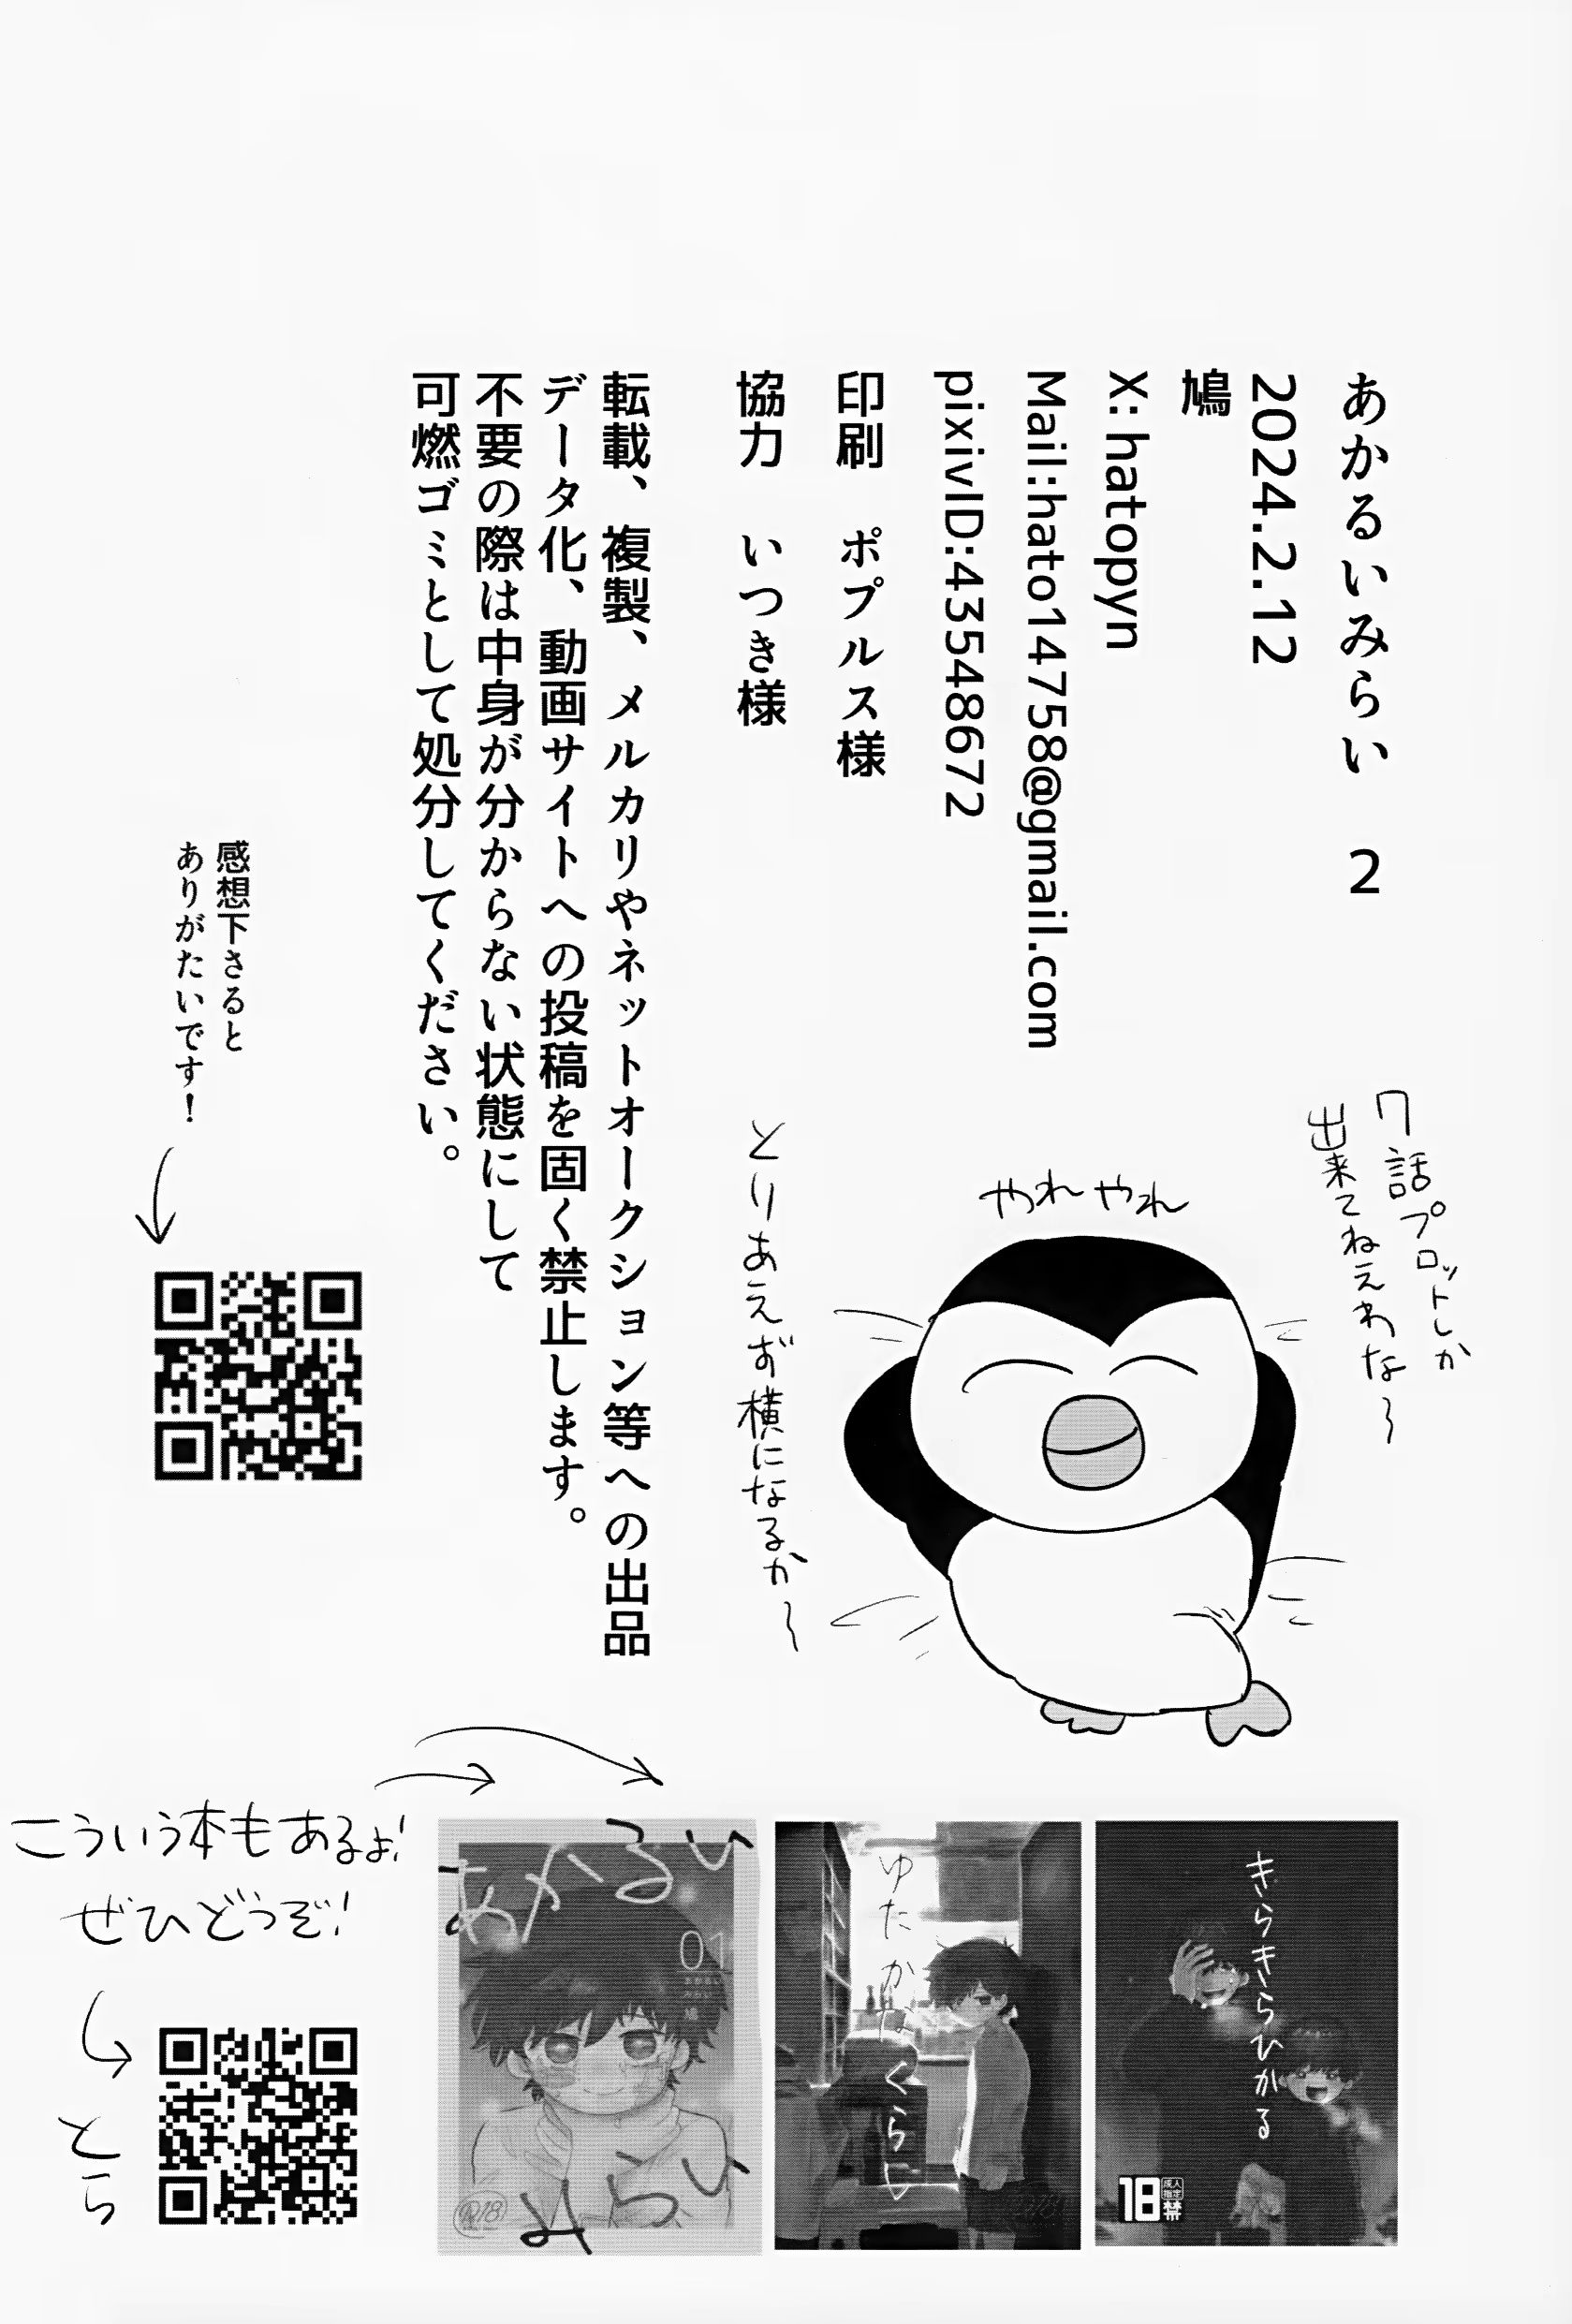 あかるいみらい　2
2024.2.12
鳩
X: hatopyn
Mail:hato14758@gmail.com
pixivID:43548672
印刷　ポプルス様
協力　いつき様
転載、複製、メルカリやネットオークション等への出品
データ化、動画サイトへの投稿を固く禁止します。
不要の際は中身が分からない状態にして
可燃ゴミとして処分してください。
感想下さると
ありがたいです！
7話プロットしか
出来てねえわな〜
やれやれ
とりあえず横になるか〜
こういう本もあるよ!
ぜひどうぞ!
とら
きらきらひかる
18
成人
指定
禁
ゆたかなくらし
R18
あかるい
みらい
01
あかるい
みらい
鳩
R18